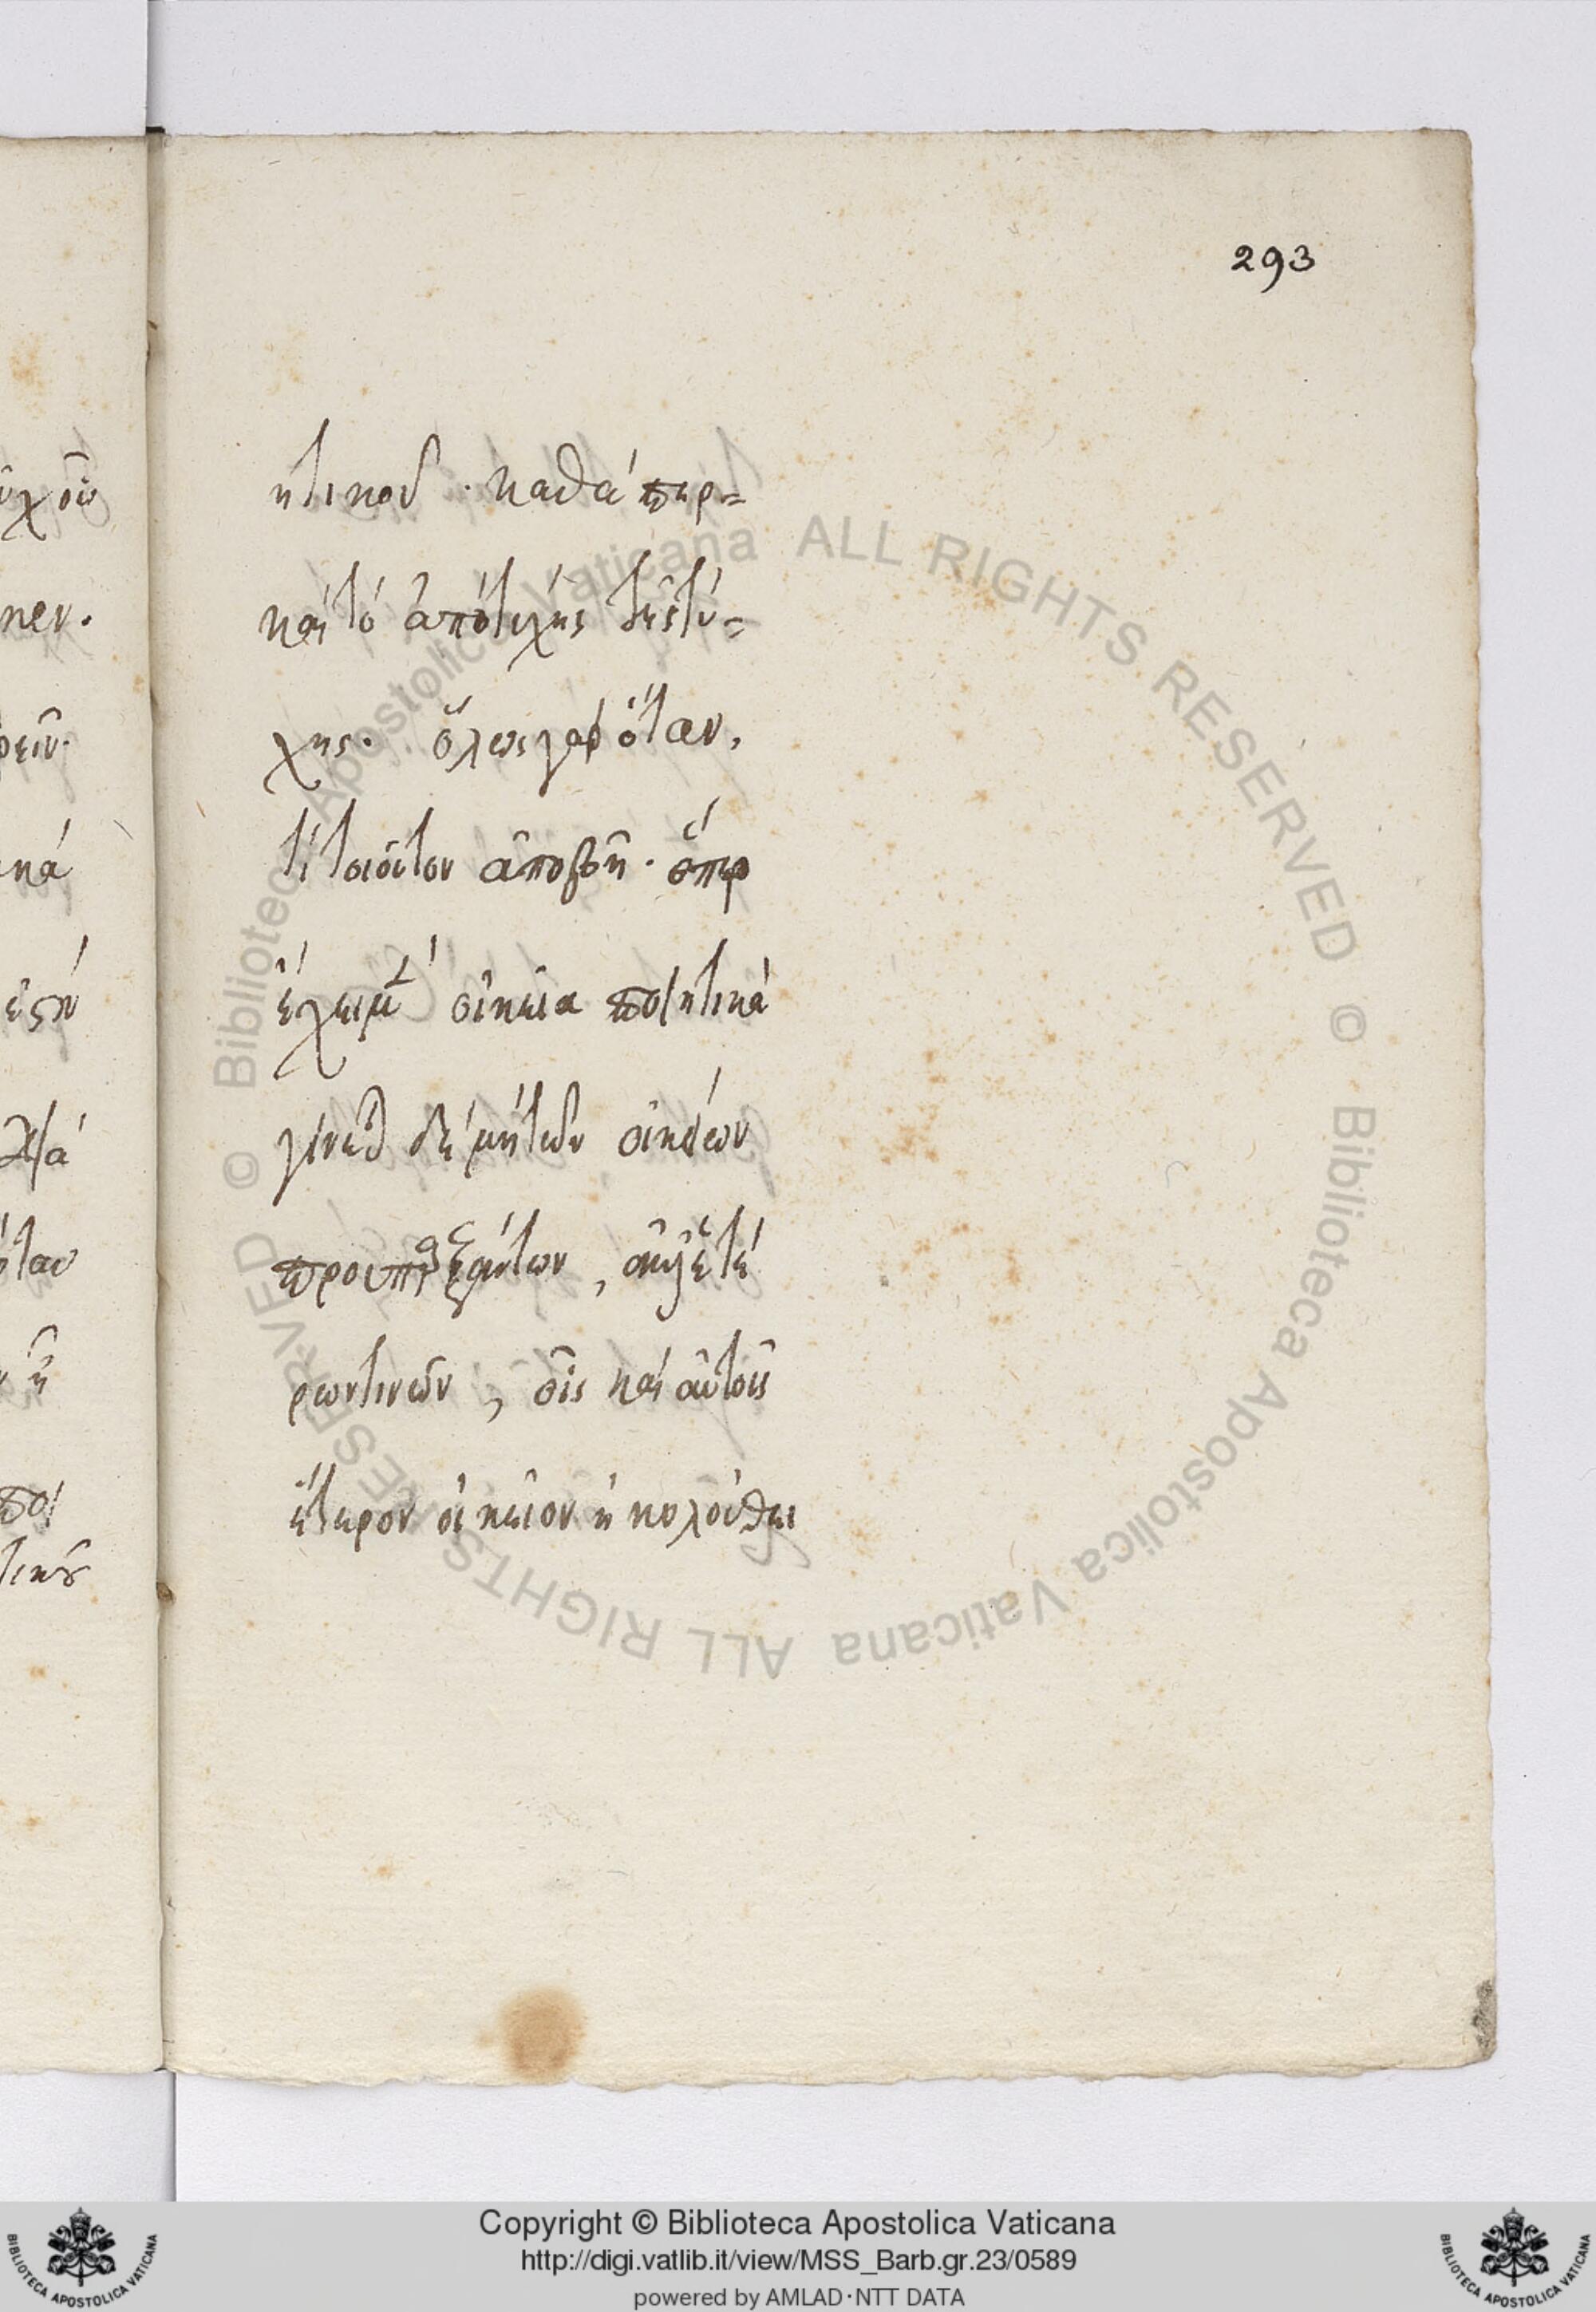 293
ητικοῦ. καθάπερ=
καὶ τὸ ἀπὸ τέχνης τῆς τύ=
χης. ὅλως γὰρ ὅταν,
τὶ τοιοῦτον ἀποβῆ. ὅπερ
ἔχει μὲν οἰκεῖα ποιητικὰ
γίνεται δὲ μὴ τῶν οἰκείων
προυπαρξάντων, ἀλλ' ἑτέ
ρων τινῶν, οἷς καὶ αὐτοῖς
ἕτερον οἰκεῖον ἠκολούθει
© Biblioteca Apostolica Vaticana ALL RIGHTS RESERVED
© Biblioteca Apostolica Vaticana ALL RIGHTS RESERVED
Copyright © Biblioteca Apostolica Vaticana
http://digi.vatlib.it/view/MSS_Barb.gr.23/0589
powered by AMLAD·NTT DATA
BIBLIOTECA APOSTOLICA VATICANA
BIBLIOTECA APOSTOLICA VATICANA